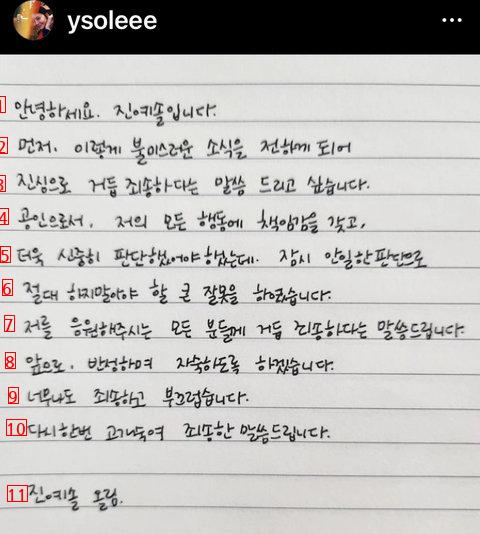 ysoleee
1 안녕하세요. 진예솔입니다.
2 먼저, 이렇게 불미스러운 소식을 전하게 되어
3 진심으로 거듭 죄송하다는 말씀 드리고 싶습니다.
4 공인으로서, 저의 모든 행동에 책임감을 갖고,
5 더욱 신중히 판단했었어야 했는데. 잠시 안일한 판단으로
6 절대 하지말아야 할 큰 잘못을 하였습니다.
7 저를 응원해주시는 모든 분들께 거듭 죄송하다는 말씀드립니다.
8 앞으로, 반성하며 자숙하도록 하겠습니다.
9 너무나도 죄송하고 부끄럽습니다.
10 다시한번 고개숙여 죄송한 말씀드립니다.
11 진예솔 올림.